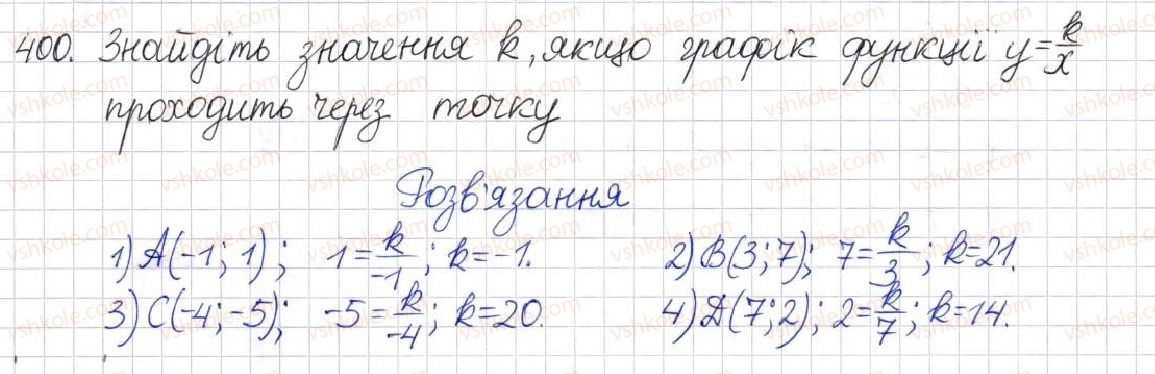 400. Знайдіть значення k, якщо графік функції y=k/x
проходить через точку
Розв'язання
1) A(-1; 1); 1=k/-1; k=-1. 2) B(3;7); 7=k/3; k=21.
3) C(-4;-5); -5=k/-4; k=20. 4) D(7;2); 2=k/7; k=14.